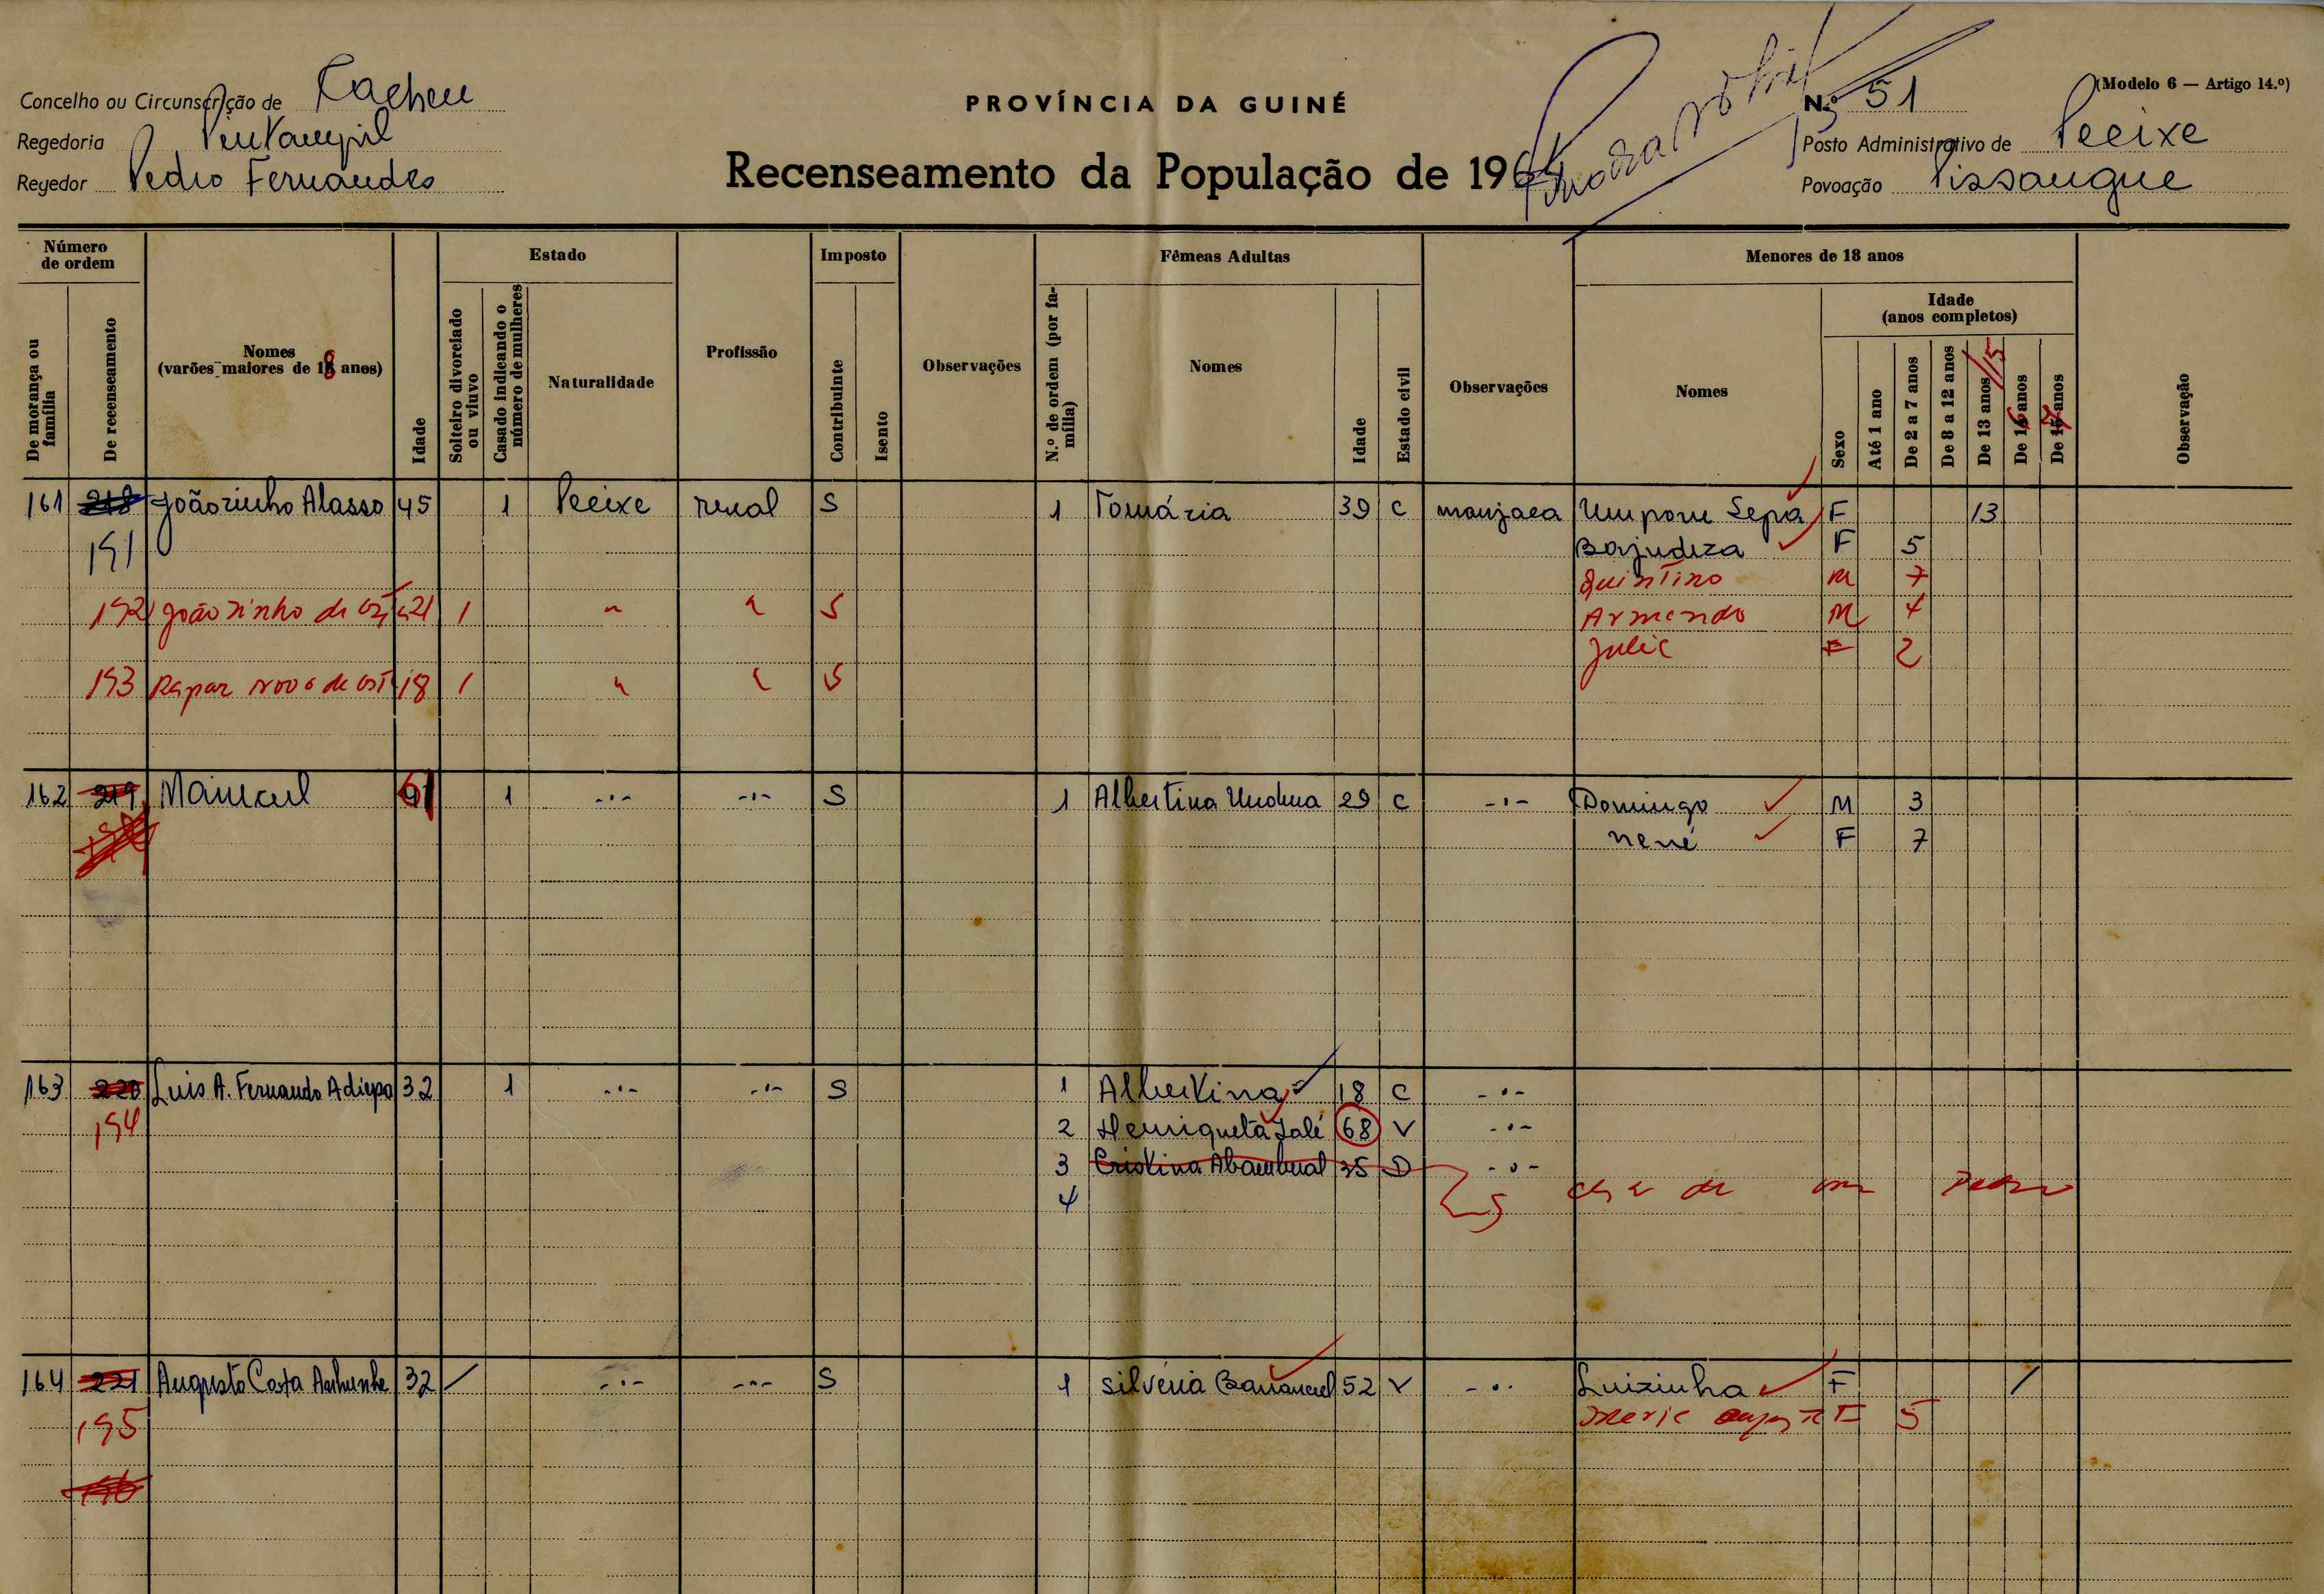 Concelho ou Circunscrição de Cacheu
Regedoria
Regedor Pedro Fernandes
PROVÍNCIA DA GUINÉ
Recenseamento da População de 196
(Modelo 6 — Artigo 14.º)
N.º 51
Posto Administrativo de Peeixe
Povoação Pissangue
Número de ordem
De morança ou família
De recenseamento
Nomes (varões maiores de 18 anos)
Idade
Estado
Solteiro divorciado ou viuvo
Casado indicando o número de mulheres
Naturalidade
Profissão
Imposto
Contribuinte
Isento
Observações
Fêmeas Adultas
N.º de ordem (por família)
Nomes
Idade
Estado civil
Observações
Menores de 18 anos
Nomes
Idade (anos completos)
Sexo
Até 1 ano
De 2 a 7 anos
De 8 a 12 anos
De 13 anos /15
De 16 anos
De 17 anos
Observação
161 218 Joãozinho Alasso 45 1 Peeixe rural S 1 Tomázia 39 C manjaca Sepa F 13
191 Bajudeza F 5
Quintino M 7
192 Joãozinho de 21 1 " " S Armando M 4
F 2
193 Rapaz Novo de 18 1 " " S
162 219 61 1 -·- -·- S 1 Albertina 29 C -·- Domingo M 3
Nené F 7
163 220 Luis A. Fernando Adiepa 32 1 -·- -·- S 1 Albertina 18 C -·-
194 2 Henriqueta Salé 68 V -·-
3 Cristina 35 D -·-
4
164 221 Augusto Costa 32 / -·- -·- S 1 Silvéria 52 V -·- Luizinha F /
195 F 5